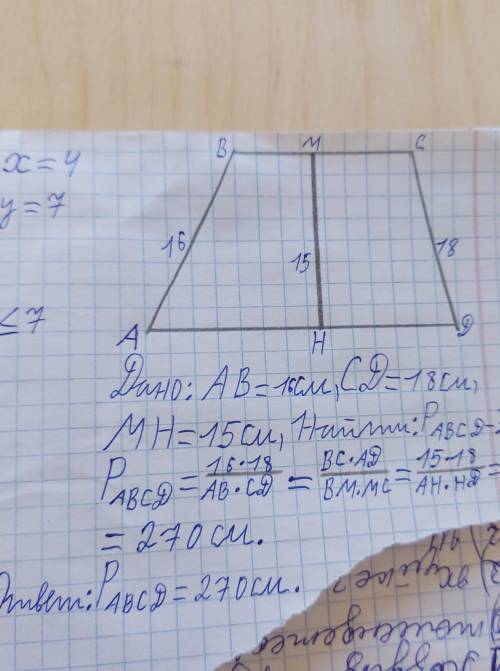 x=4
y=7
≤7
B M C
16 15 18
A H D
Дано: AB=16см, CD=18см,
MH=15см, Найти: P_ABCD-
P_ABCD = 16·18/AB·CD = BC·AD/BM·MC = 15·18/AH·HD =
=270см.
Ответ: P_ABCD=270см.